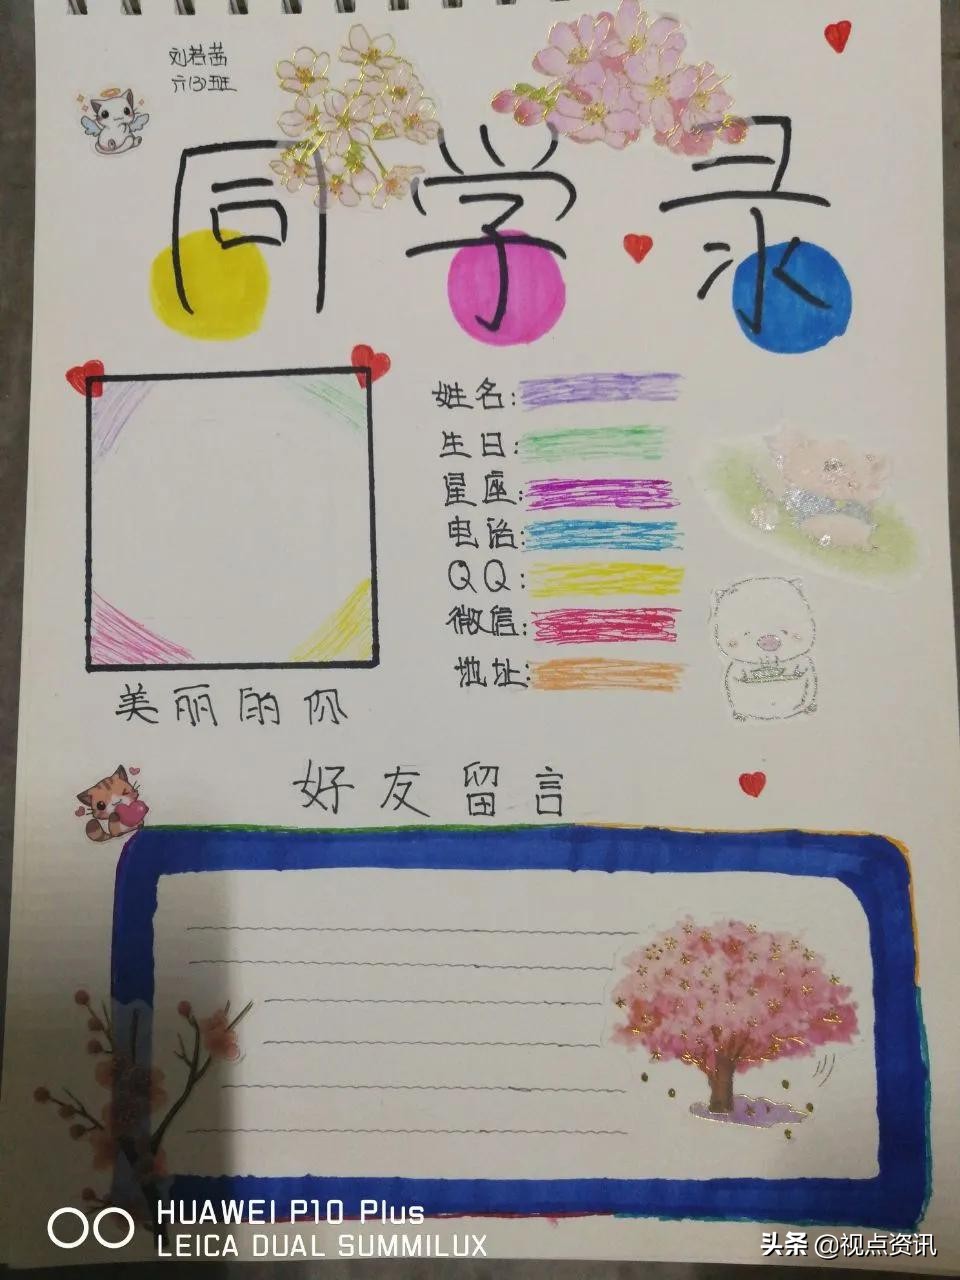 刘若茜
六(3)班
同学录
姓名:
生日:
星座:
电话:
QQ:
微信:
地址:
美丽的你
好友留言
HUAWEI P10 Plus
LEICA DUAL SUMMILUX
头条 @视点资讯